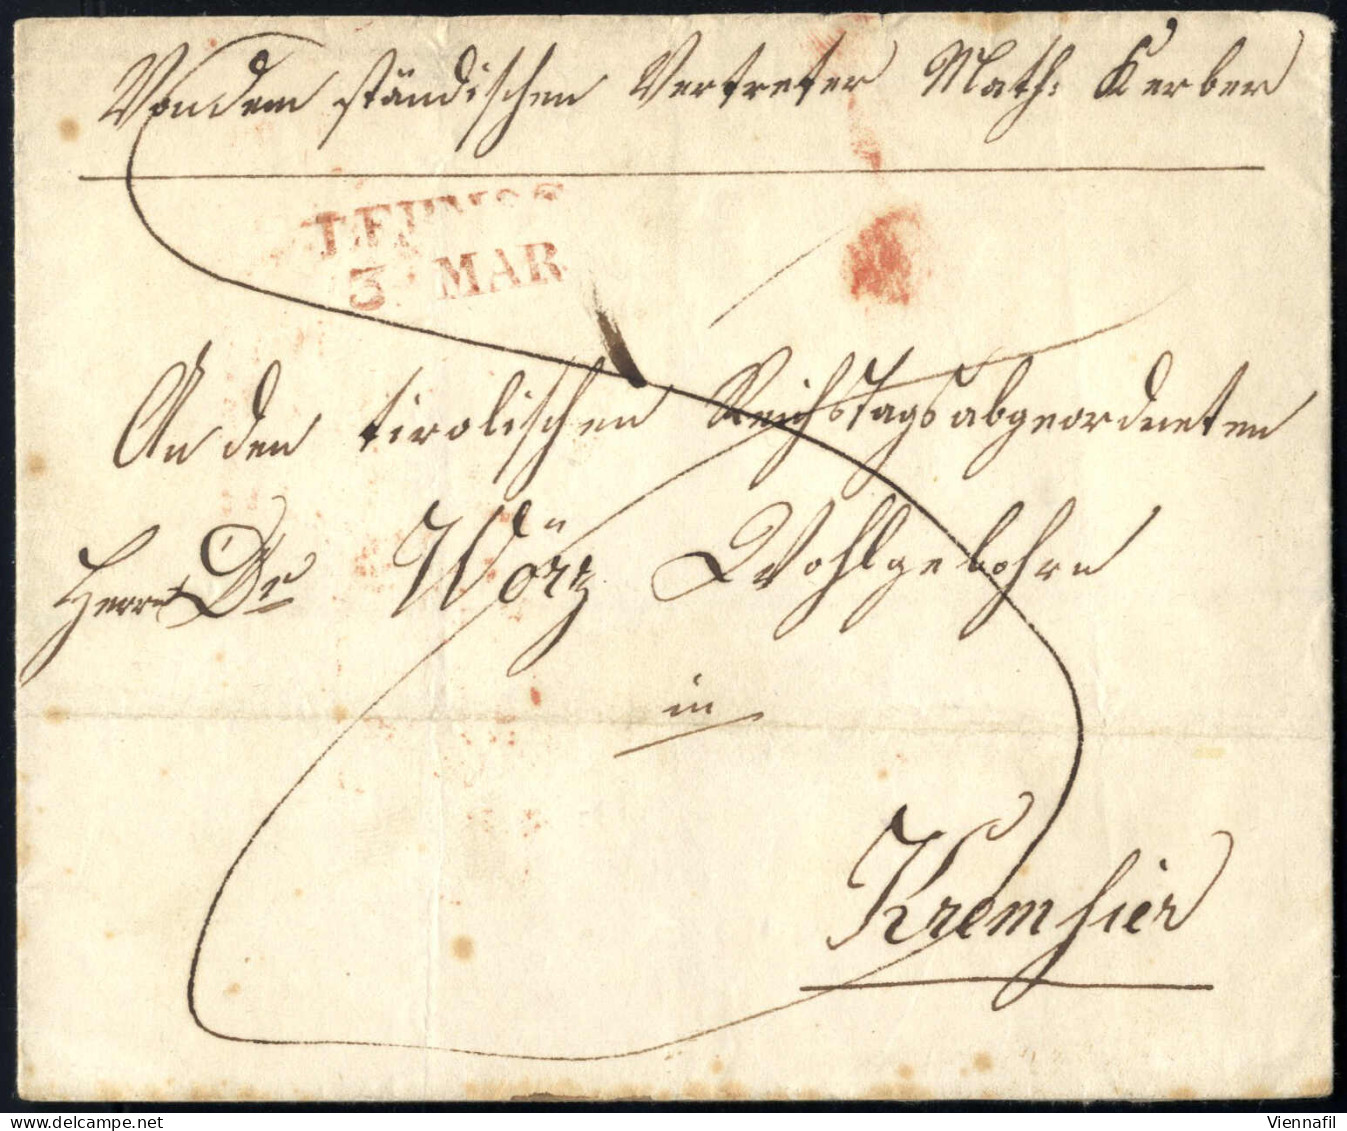 Von dem ständischen Vertreter Math: Kerber
LERMOS
3. MAR
An den tirolischen Reichstagsabgeordneten
Herrn Dr Wörz Wohlgebohrn
in
Kremsier
Viennafil